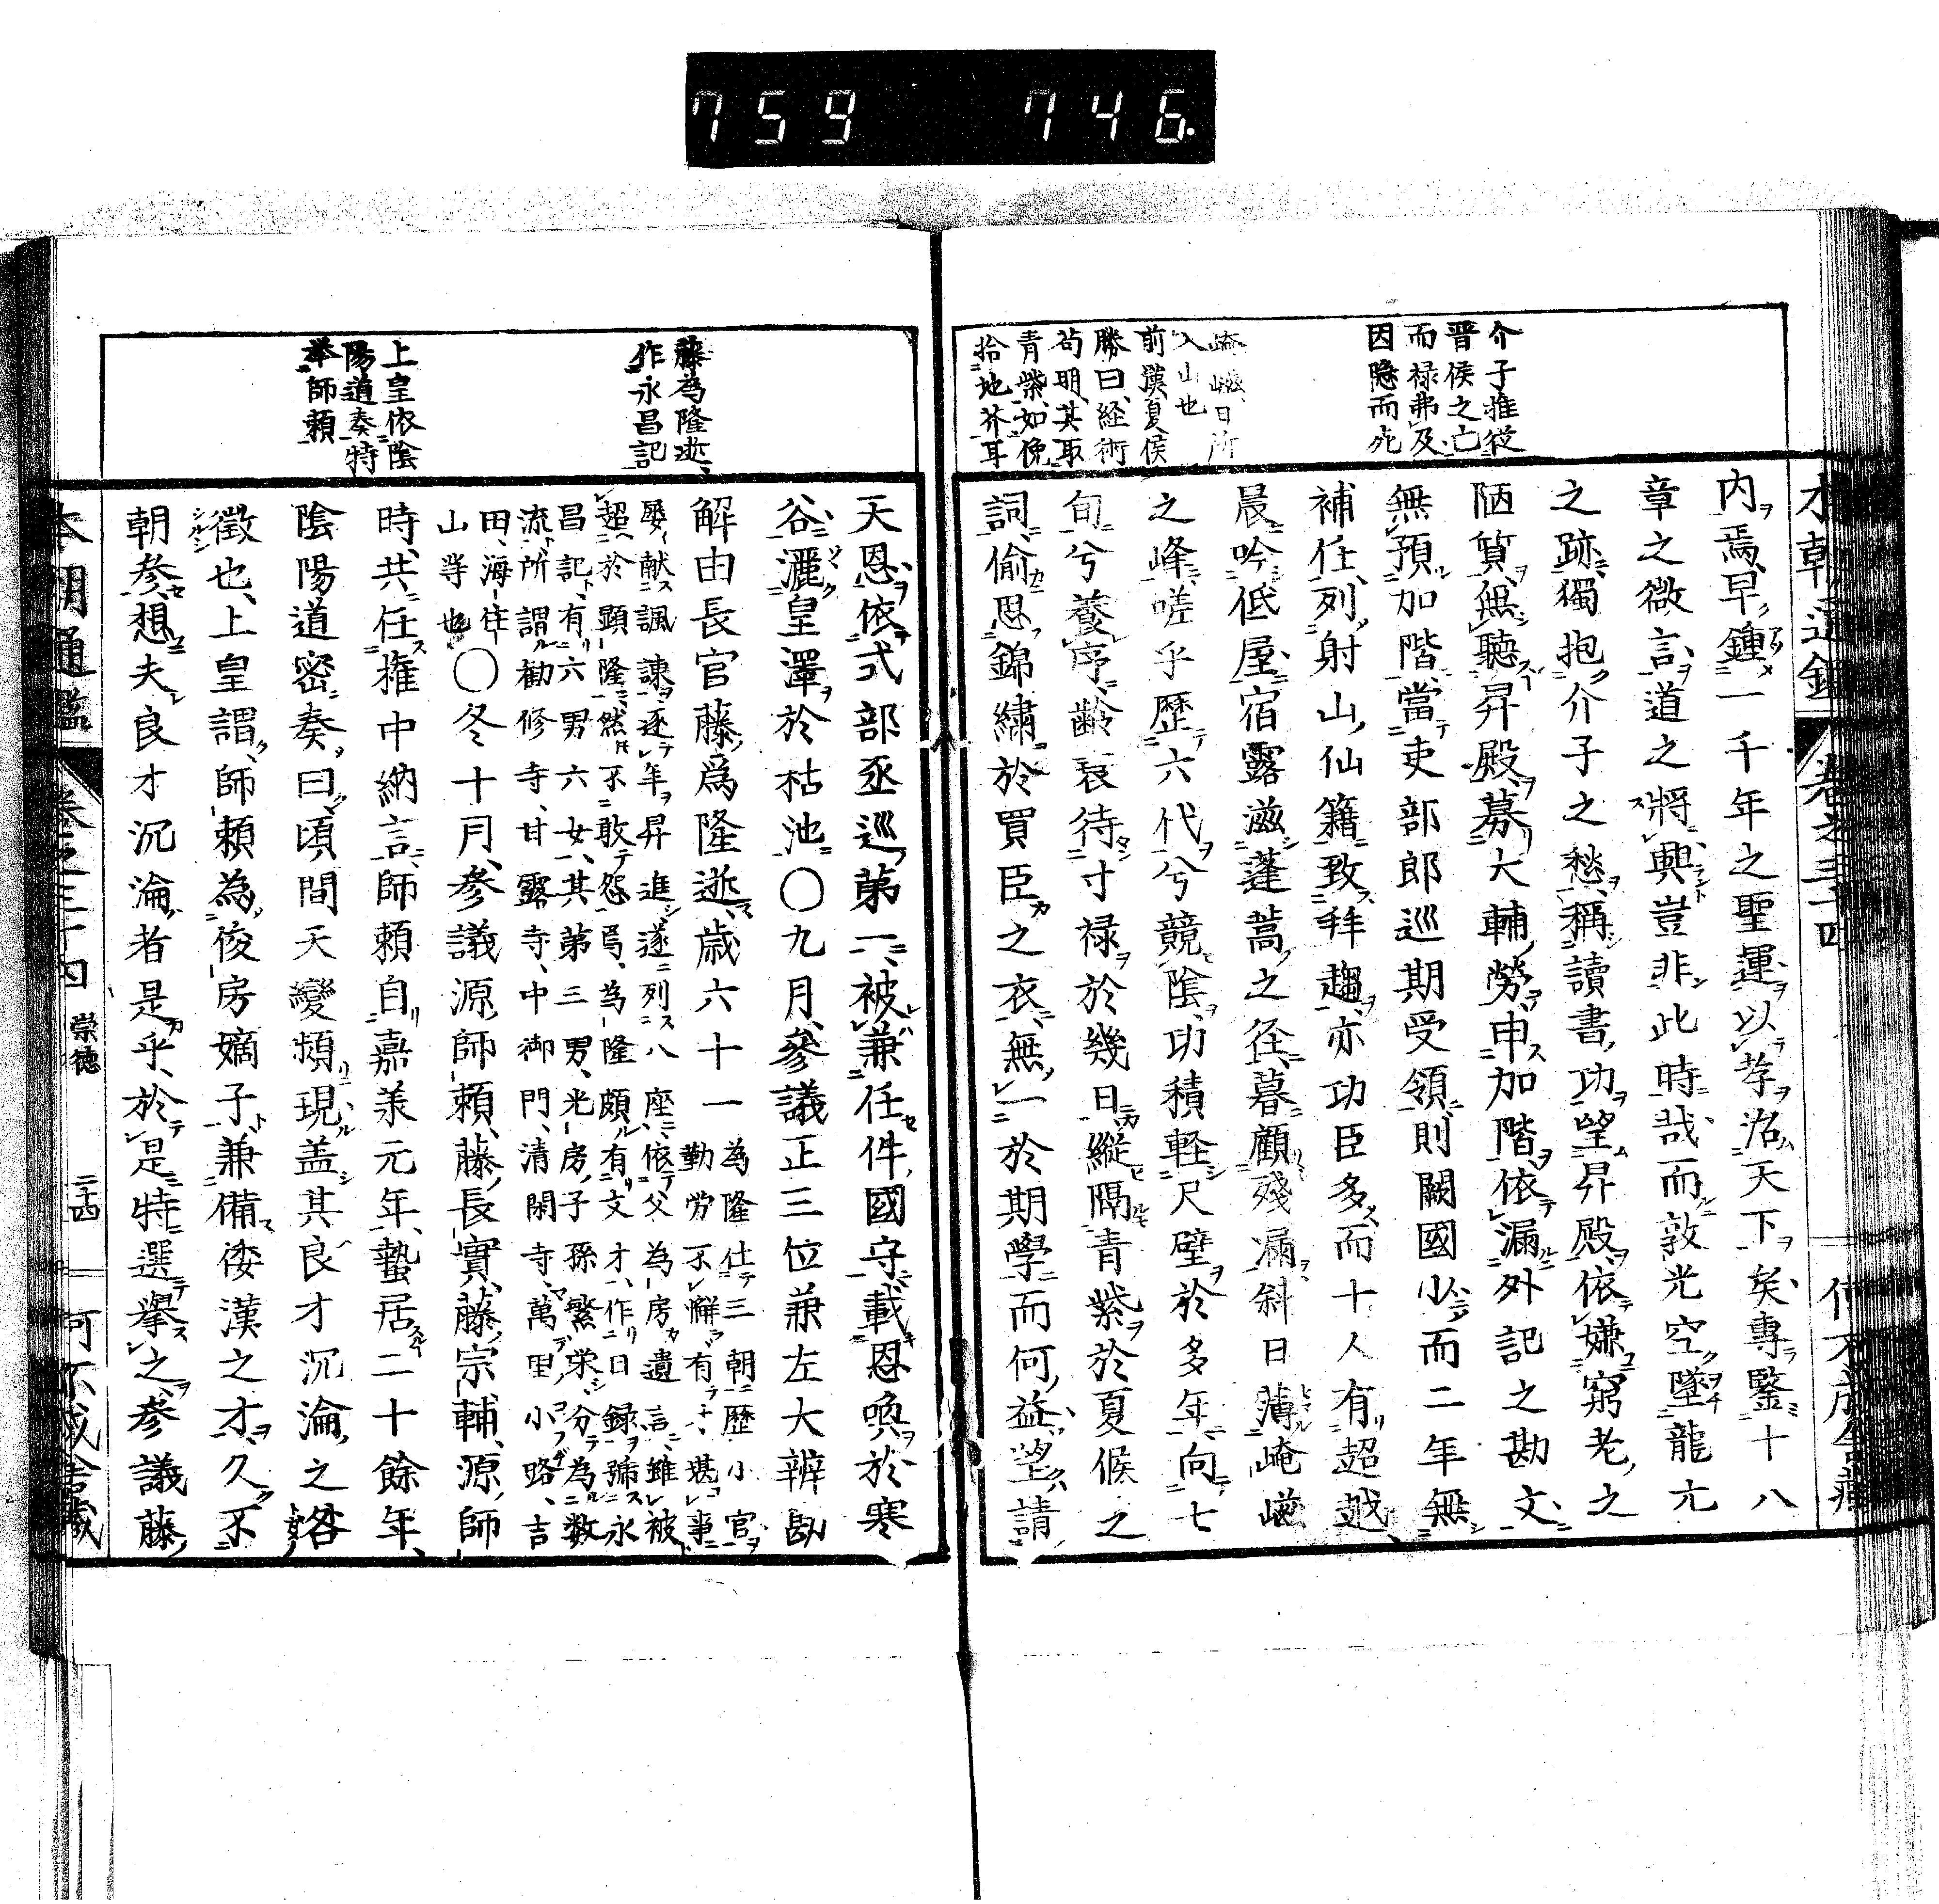 759 746.
本朝通鑑 卷之三十四
介子推從
晋侯之亡
而祿弗及
因隱而死
崦嵫日所
入山也
前漢夏侯
勝曰經術
苟明其取
青紫如俛
拾地芥耳
内焉早鍾一千年之聖運以孝治天下矣專鑒十八
章之微言道之將興豈非此時哉而敦光空墜龍亢
之跡獨抱介子之愁稱讀書功望昇殿依嫌窮老之
陋質無聽昇殿募大輔勞申加階依漏外記之勘文
無預加階當吏部郎巡期受領則闕國少而二年無
補任列射山仙籍致拜趨亦功臣多而十人有超越
晨吟低屋宿露滋蓬蒿之径暮顧殘漏斜日薄崦嵫
之峰嗟乎歷六代兮競陰功積軽尺璧於多年向七
旬兮養序齡衰待寸禄於幾日縦隔青紫於夏侯之
詞偷思錦繡於買臣之衣無一於期學而何益望請
藤為隆逝
作永昌記
上皇依陰
陽道奏特
舉師頼
天恩依式部丞巡第一被兼任件國守載恩喚於寒
谷灑皇澤於枯池〇九月參議正三位兼左大辨勘
解由長官藤爲隆逝歳六十一
為隆仕三朝歴小官
勤労不懈有堪事
屡献諷諫逐年昇進遂列八座依父為房遺言雖被
超於顕隆然不敢怨焉為隆頗有文才作日録号永
昌記有六男六女其第三男光房子孫繁栄分為数
流所謂勧修寺甘露寺中御門清閑寺萬里小路吉
田海住
山等也
〇冬十月參議源師頼藤長實藤宗輔源師
時共任權中納言師頼自嘉美元年蟄居二十餘年
陰陽道密奏曰頃間天變頻現盖其良才沉淪之咎
徴也上皇謂師頼為俊房嫡子兼備倭漢之才久不
朝參想夫良才沉淪者是乎於是特選擧之參議藤
本朝通鑑 卷之三十四 崇徳 二十四